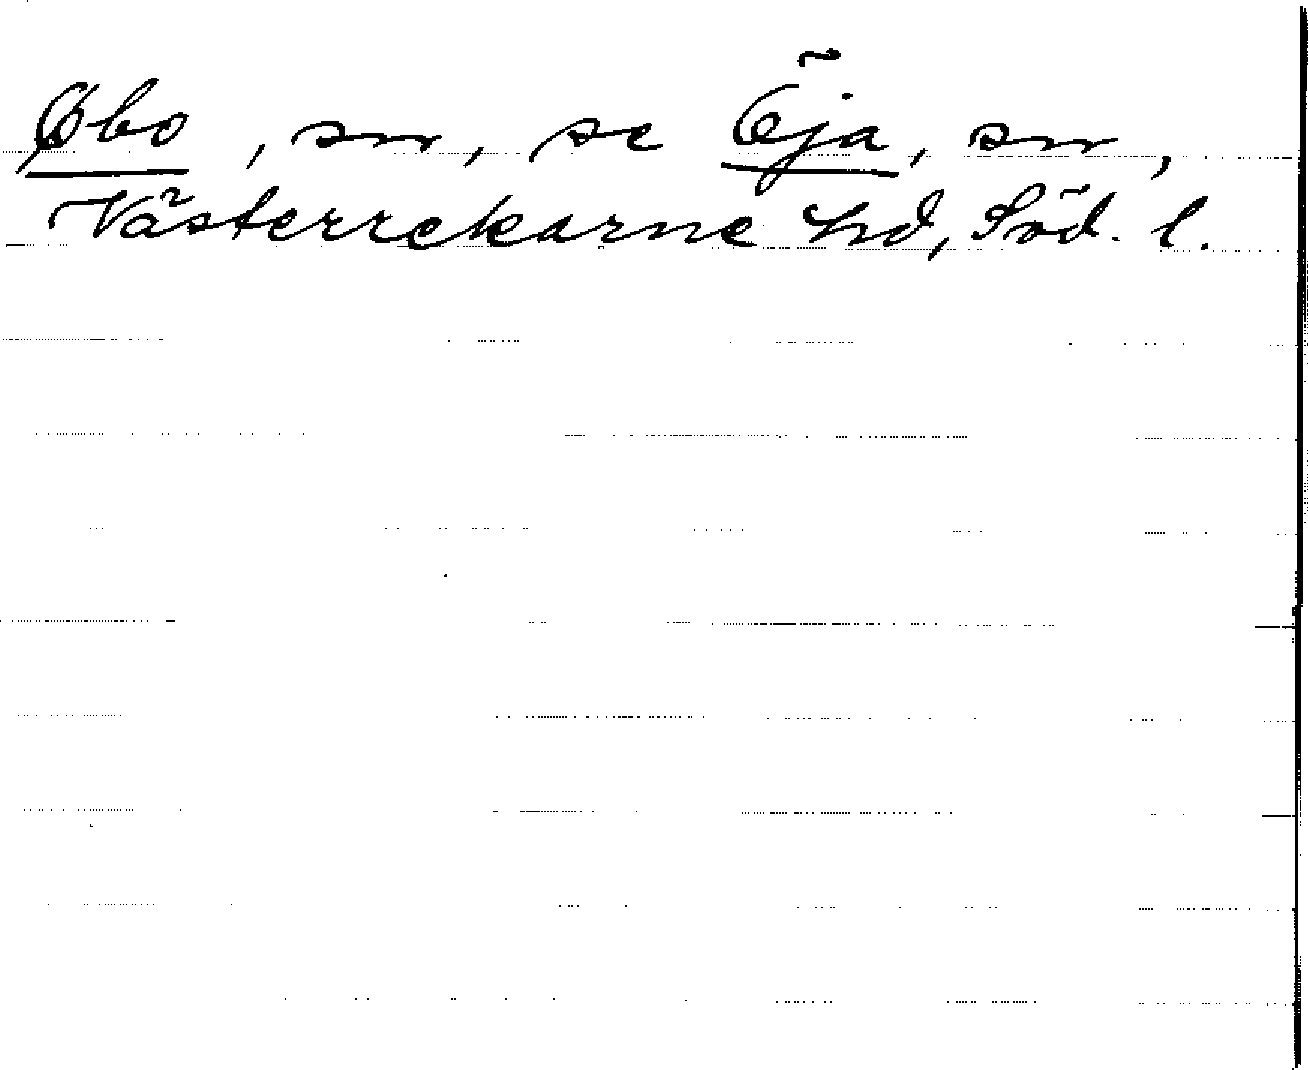 Øbo, sn, se Öja, sn,
Västerrekarne hd, Söd. l.